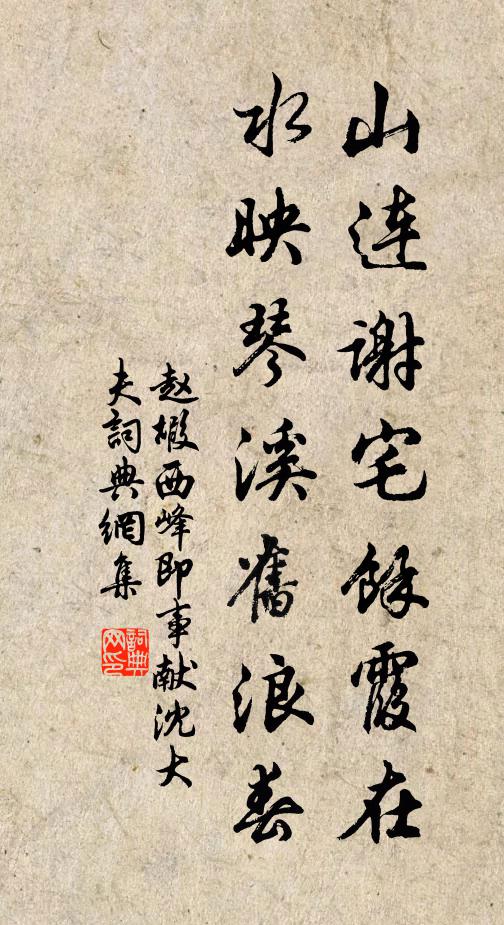 山連謝宅餘霞在
水映琴溪舊浪春
赵嘏西峰即事献沈大
夫詞典網集
詞典
网印